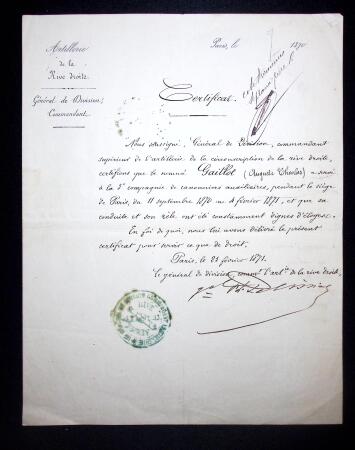 Artillerie
de la
Rive droite.
Général de Division,
Commandant.
Paris, le 1870
Certificat.
Nous soussigné, Général de Division, commandant
supérieur de l'artillerie de la circonscription de la rive droite,
certifions que le nommé Gaillot (Auguste Charles) a servi
à la 5e compagnie de canonniers auxiliaires, pendant le siège
de Paris, du 11 septembre 1870 au 4 février 1871 et que sa
conduite et son zèle ont été constamment dignes d'éloges.
En foi de quoi, nous lui avons délivré le présent
certificat pour servir ce que de droit.
Paris, le 21 février 1871.
Le général de division, commt l'artie de la rive droite,